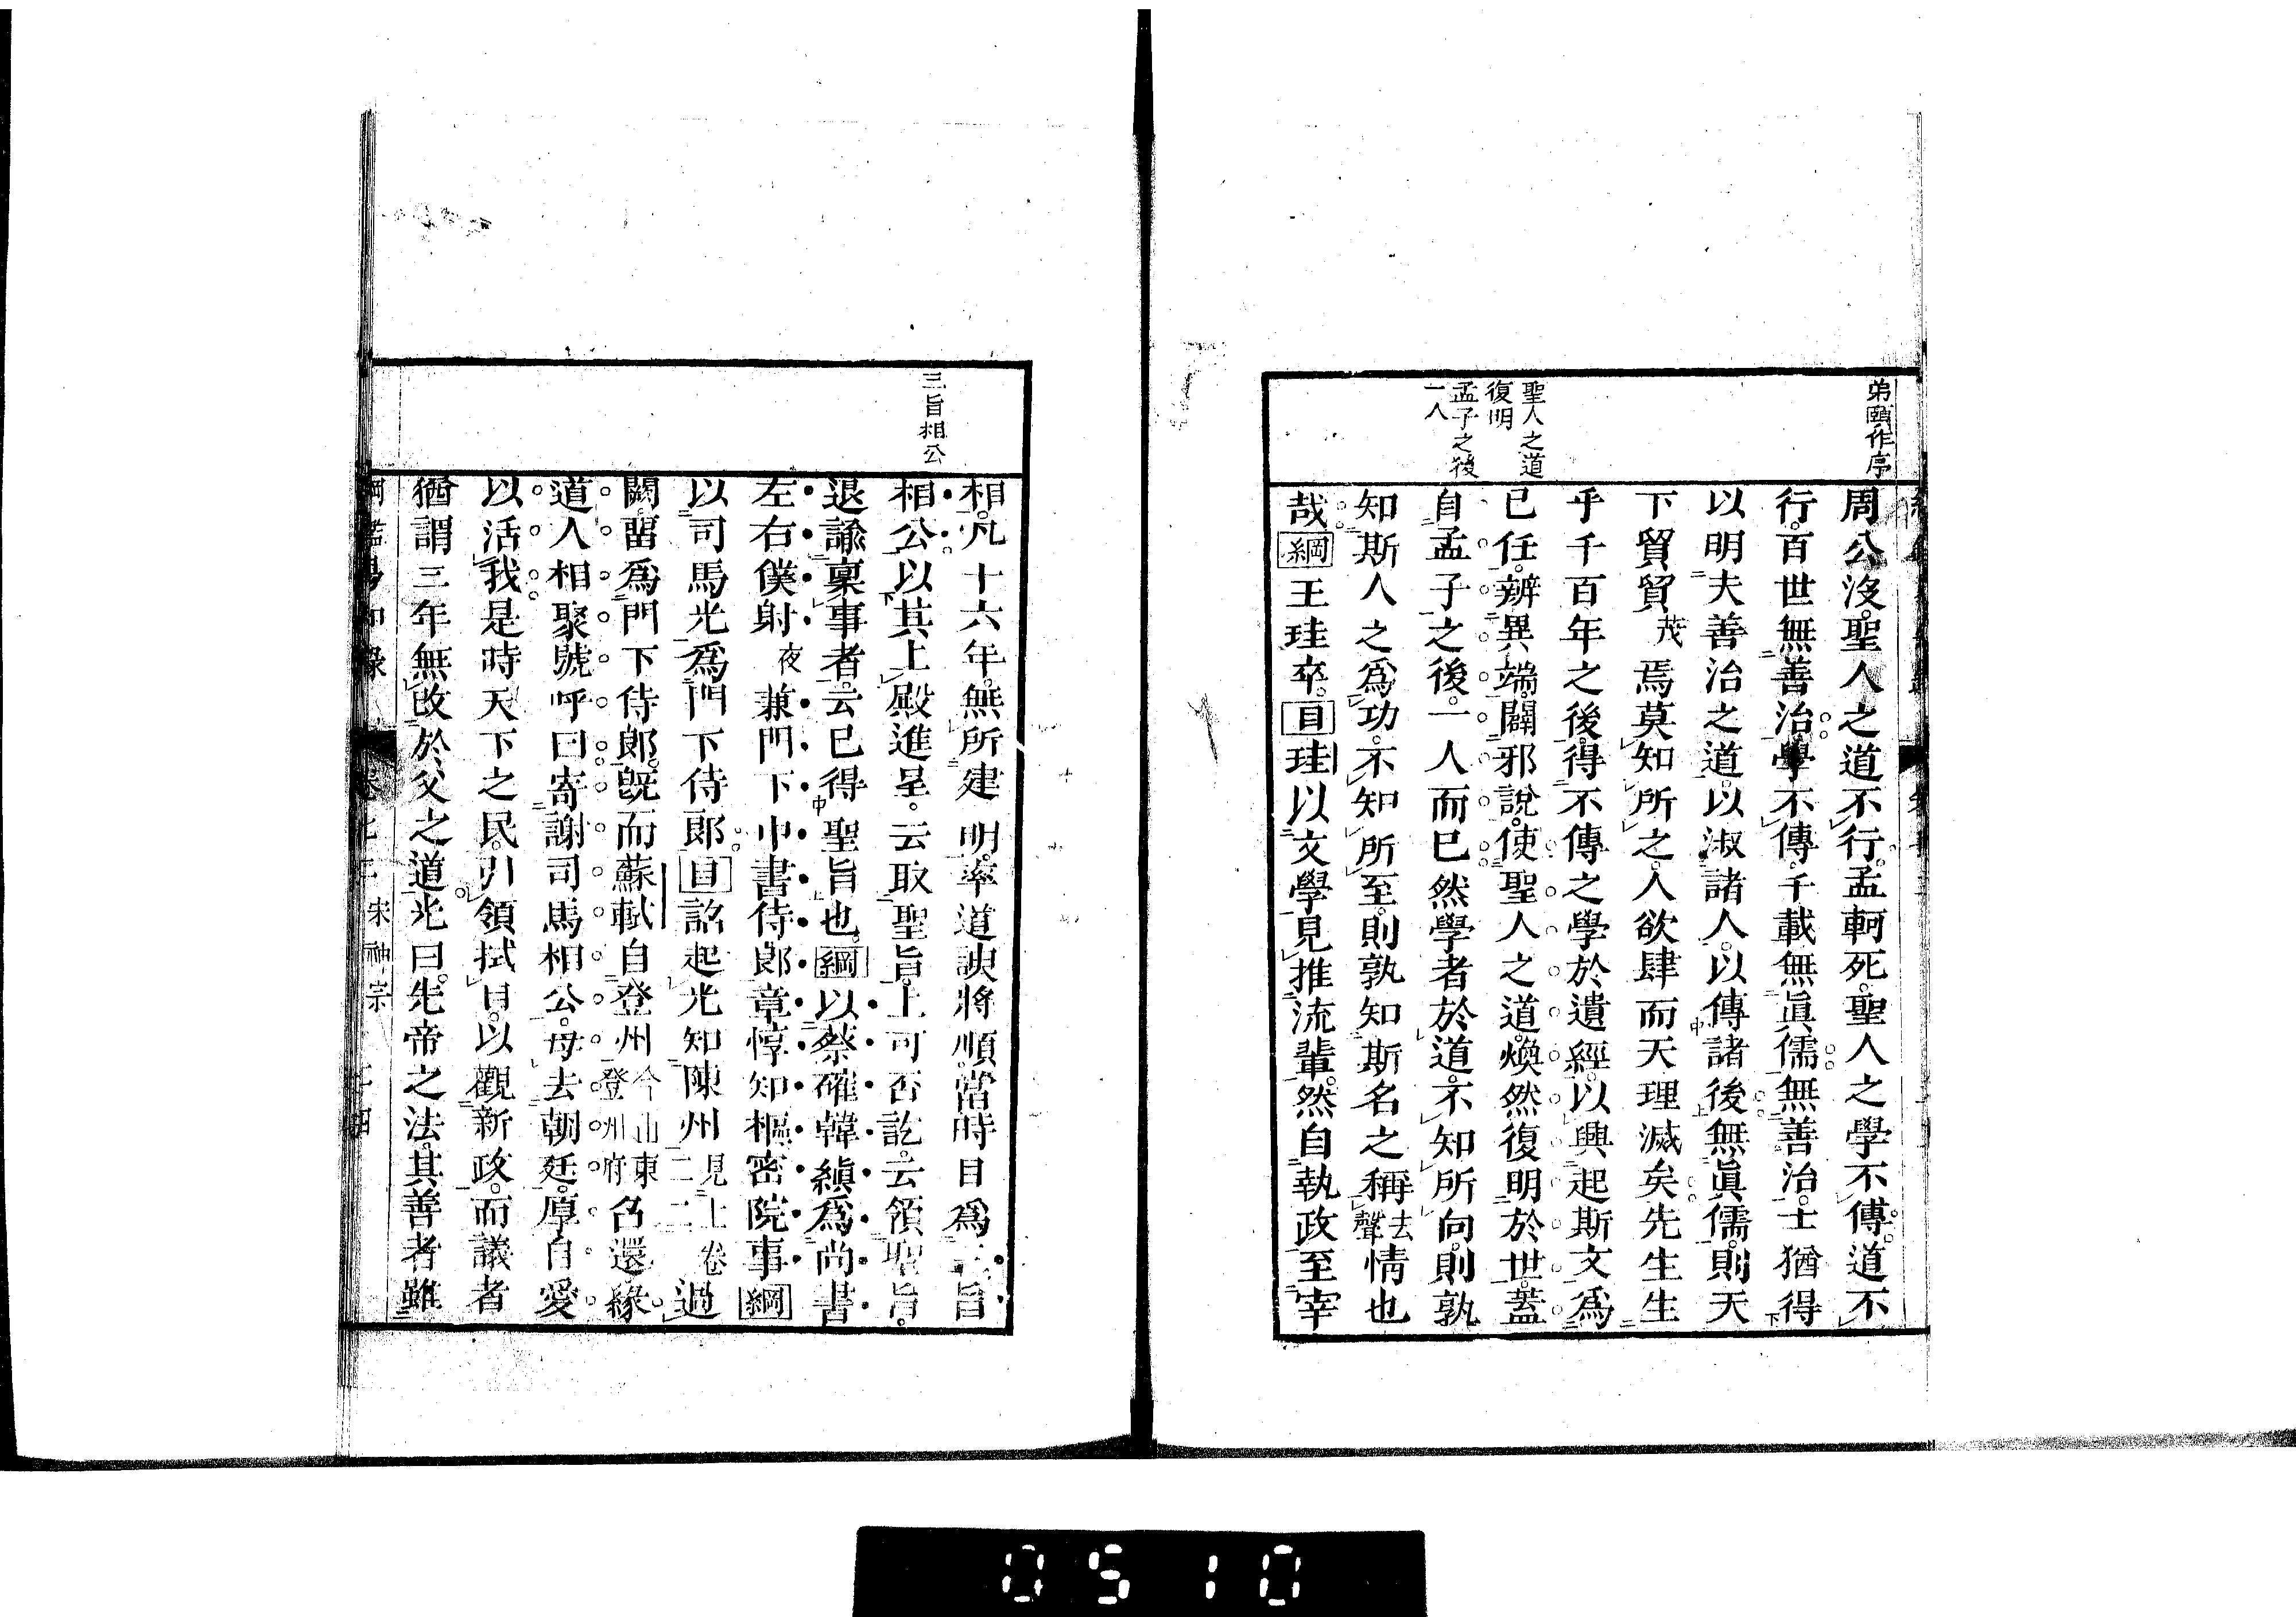 弟頤作序
聖人之道
復明
孟子之後
一人
周公沒。聖人之道不行。孟軻死。聖人之學不傳。道不
行。百世無善治。學不傳。千載無眞儒。無善治。士猶得
以明夫善治之道。以淑諸人。以傳諸後。無眞儒。則天
下貿貿茂焉莫知所之。人欲肆而天理滅矣。先生生
乎千百年之後。得不傳之學於遺經。以興起斯文爲
已任。辨異端。闢邪說。使聖人之道。煥然復明於世。蓋
自孟子之後。一人而已。然學者於道。不知所向。則孰
知斯人之爲功。不知所至。則孰知斯名之稱去聲情也
哉。綱王珪卒。目珪以文學見推流輩。然自執政至宰
三旨相公
相。凡十六年。無所建明。率道諛將順。當時目爲三旨
相公。以其上殿進呈。云取聖旨。上可否訖。云領聖旨。
退諭稟事者。云已得聖旨也。綱以蔡確韓縝爲尚書
左右僕射夜兼門下中書侍郎。章惇知樞密院事。綱
以司馬光爲門下侍郎。目詔起光知陳州見上卷二二過
闕。畱爲門下侍郎。旣而蘇軾自登州今山東登州府召還。緣
道人相聚號呼曰。寄謝司馬相公。毋去朝廷。厚自愛
以活我。是時天下之民。引領拭目。以觀新政。而議者
猶謂三年無改於父之道。光曰。先帝之法。其善者雖
綱鑑易知錄 卷七三 宋神宗
0510